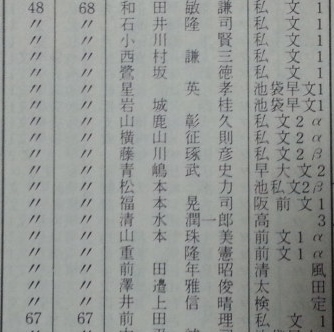 48 68 和田敏謙 私文1
〃 〃 石井隆司 私文1
〃 〃 小川賢 私文1
〃 〃 西村謙三 私文1
〃 〃 鷺坂徳 私文1
〃 〃 星英孝 池袋文1
〃 〃 岩城桂 池袋早文1
〃 〃 山鹿彰久 私文2α
〃 〃 横山征則 私文2α
〃 〃 藤川琢彦 私文2β
〃 〃 青嶋武史 早大文2
〃 〃 松本力 池袋文2β
〃 〃 福本晃司 阪前文1
〃 〃 清水潤一郎 高3
〃 〃 山本珠美 前文1α
〃 〃 重隆憲 前文1α
〃 〃 前田年昭 清風
〃 〃 澤邉雅俊 太田
〃 〃 井上信晴 検定
67 67 前田 私文1